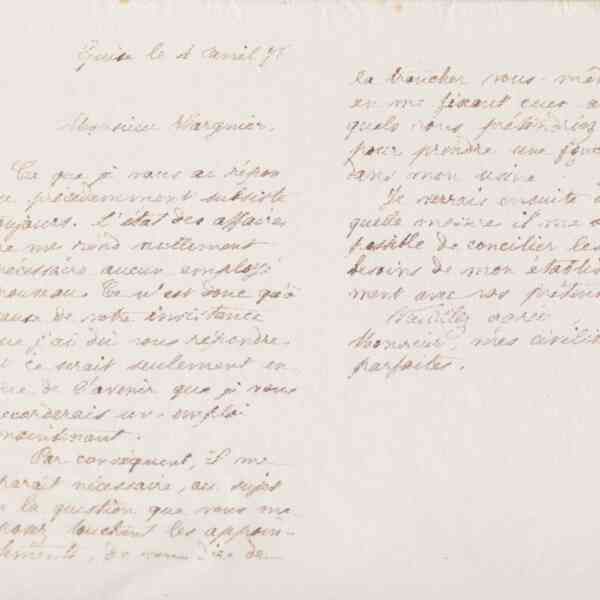 Guise le 4 avril 75
Monsieur Vargnier,
Ce que je vous ai répon
du précédemment subsiste
toujours. L'état des affaires
ne me rend nullement
nécessaire aucun employé
nouveau. Ce n'est donc qu'à
cause de votre insistance
que j'ai dû vous répondre
et ce serait seulement en
vue de l'avenir que je vous
accorderais un emploi
maintenant.
Par conséquent, il me
paraît nécessaire, au sujet
de la question que vous me
posez touchant les appoin-
tements, de vous dire de
la trancher vous-mêm
en me fixant
quels vous prétendriez
pour prendre une fonc
dans mon usine.
Je verrais ensuite
quelle mesure il me
possible de concilier les
besoins de mon établis
ment avec vos préten
Veuillez agréer
Monsieur, mes civilit
parfaites.